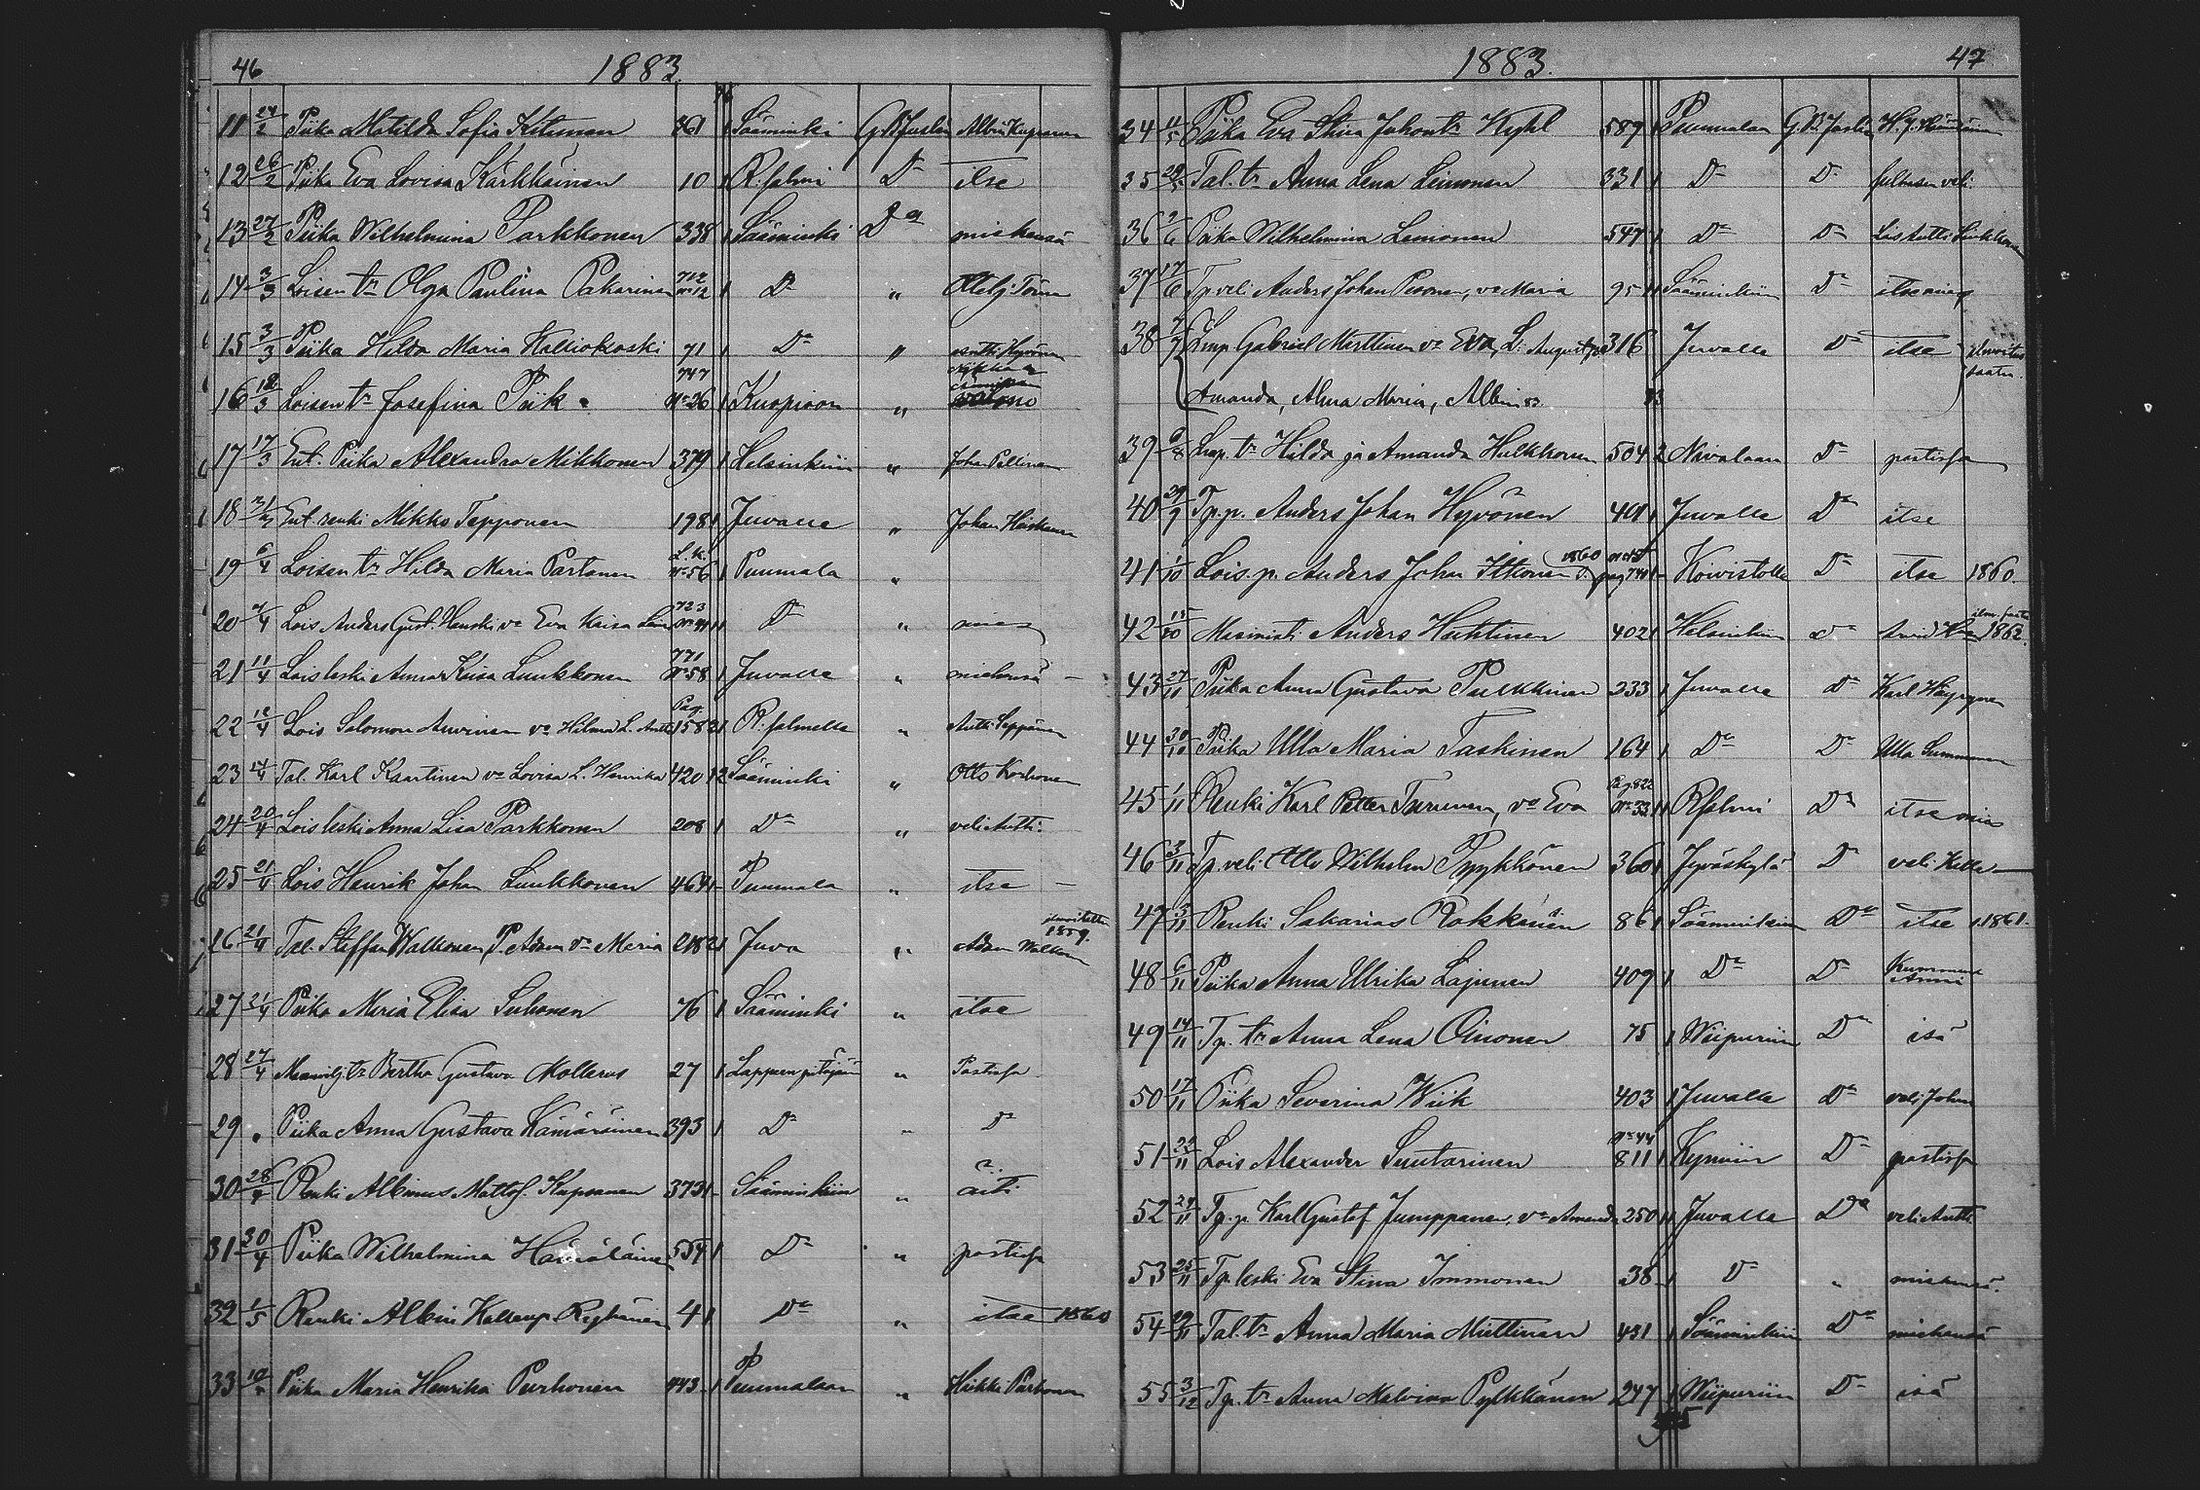 46 1883.
11 24/2 Piika Matilda Sofia 361 1 Sääminki G B Juslen Albin Kuposnen
12 26/2 Piika Eva Lovisa Kärkkäinen 10 1 R:salmi D:o itse
13 27/2 Piika Wilhelmina Parkkonen 338 1 Sääminki D:o miehensä
14 3/3 Loisen tr Olga Paulina Pakarinen 712 No 12 1 D:o "
15 3/3 Piika Hilda Maria Kalliokoski 71 1 D:o " Antti Hyvönen
16 18/3 Loisen tr Josefina Piik 747 No 26 1 Kuopioon "
17 17/3 Ent. Piika Alexandra Mikkonen 379 1 Helsinkiin " Johan Pellinen
18 Ent renki Mikko Tepponen 198 1 Juvalle " Johan
19 6/4 Loisen tr Hilda Maria Partanen L.k. No 56 1 Puumala "
20 7/4 Lois Anders Gust. Hauski vo Eva Kaisa 723 11 D:o "
21 11/4 Lois leski Anna Kaisa Luukkonen 771 No 58 1 Juvalle " miehensä –
22 12/4 Lois Salomon Auvinen vo Hilma L. Antti Pag. 158 21 R:salmelle " Antti Seppänen
23 17/4 Tal. Karl Kaartinen vo Lovisa L. Henrika 420 12 Sääminki " Otto Korhonen
24 20/4 Lois leski Anna Lisa Parkkonen 208 1 D:o " veli Antti
25 21/4 Lois Henrik Johan Liukkonen 464 1 Puumala " itse –
26 21/4 Tal. Steffan Walkonen P. Adam vo Maria 218 21 Juva " Adam Walkonen 1859.
27 21/4 Piika Maria Elisa Suhonen 76 1 Sääminki " itse
28 27/4 Bertha Gustava Mollerus 27 1 " Postissa
29 " Piika Anna Gustava Kämäräinen 393 1 D:o " D:o
30 28/4 Renki Albinus Mattsf. Kuposnen 373 1 Sääminkiin " äiti
31 30/4 Piika Wilhelmina Hämäläinen 554 1 D:o " postissa
32 1/5 Renki Albin 4 1 D:o " itse 1860
33 10/" Piika Maria Henrika Purhonen 443 1 Puumalaan " Heikki Purhonen
1883. 47
34 11/5 Piika Eva Stina Johontr Kyhl 589 1 Puumalan G.B. Juslen
35 Tal. tr Anna Lena Leinonen 331 1 D:o D:o veli
36 2/6 Piika Wilhelmina Lemonen 547 1 D:o D:o Lois Antti Liukkonen
37 17/6 Tp veli Anders Johan Pesonen, vo Maria 95 11 Sääminkiin D:o itse
38 7/7 Gabriel Marttinen vo Eva, L: August 316 Juvalle D:o itse
Amanda, Alma Maria, Albin
39 6/8 Lamp. tr Hilda ja Amanda Hulkkonen 504 2 Nivalaan D:o postissa
40 29/9 Tp. p. Anders Johan Hyvönen 401 1 Juvalle D:o itse
41 1/10 Lois. p. Anders Johan Itkonen 1860 pag 740 1 Koivistolle D:o itse 1860.
42 15/10 Masinisti Anders Huhtinen 402 1 Helsinkiin D:o 1862.
43 27/10 Piika Anna Gustava Pulkkinen 233 1 Juvalle D:o Karl Häyrynen
44 30/10 Piika Ulla Maria Taskinen 164 1 D:o D:o Ulla Summanen
45 1/11 Renki Karl Petter Turunen, vo Eva Pag 822 No 33 11 R:salmi D:o itse
46 3/11 Tp. veli Otto Wilhelm Pyykkönen 360 1 Jyväskylä D:o veli Kalle
47 5/11 Renki Sakarias Rokkänen 86 1 Sääminkiin D:o itse 1861.
48 6/11 Piika Anna Ulrika Lajunen 409 1 D:o D:o Anni
49 14/11 Tp. tr Anna Lena Oinonen 75 1 Wiipuriin D:o isä
50 17/11 Piika Severina Wiik 403 1 Juvalle D:o veli Johan
51 22/11 Lois Alexander Suutarinen No 44 811 1 Kymiin D:o postissa
52 24/11 Tp. p. Karl Gustaf Jumppanen, vo Amanda 250 11 Juvalle D:o veli Antti
53 25/11 Tp. leski Eva Stina Immonen 38 1 D:o " miehensä
54 29/11 Tal. tr Anna Maria Miettinen 431 1 Sääminkiin D:o miehensä
55 3/12 Tp. tr Anna Malviina Pylkkänen 247 1 Wiipuriin D:o isä